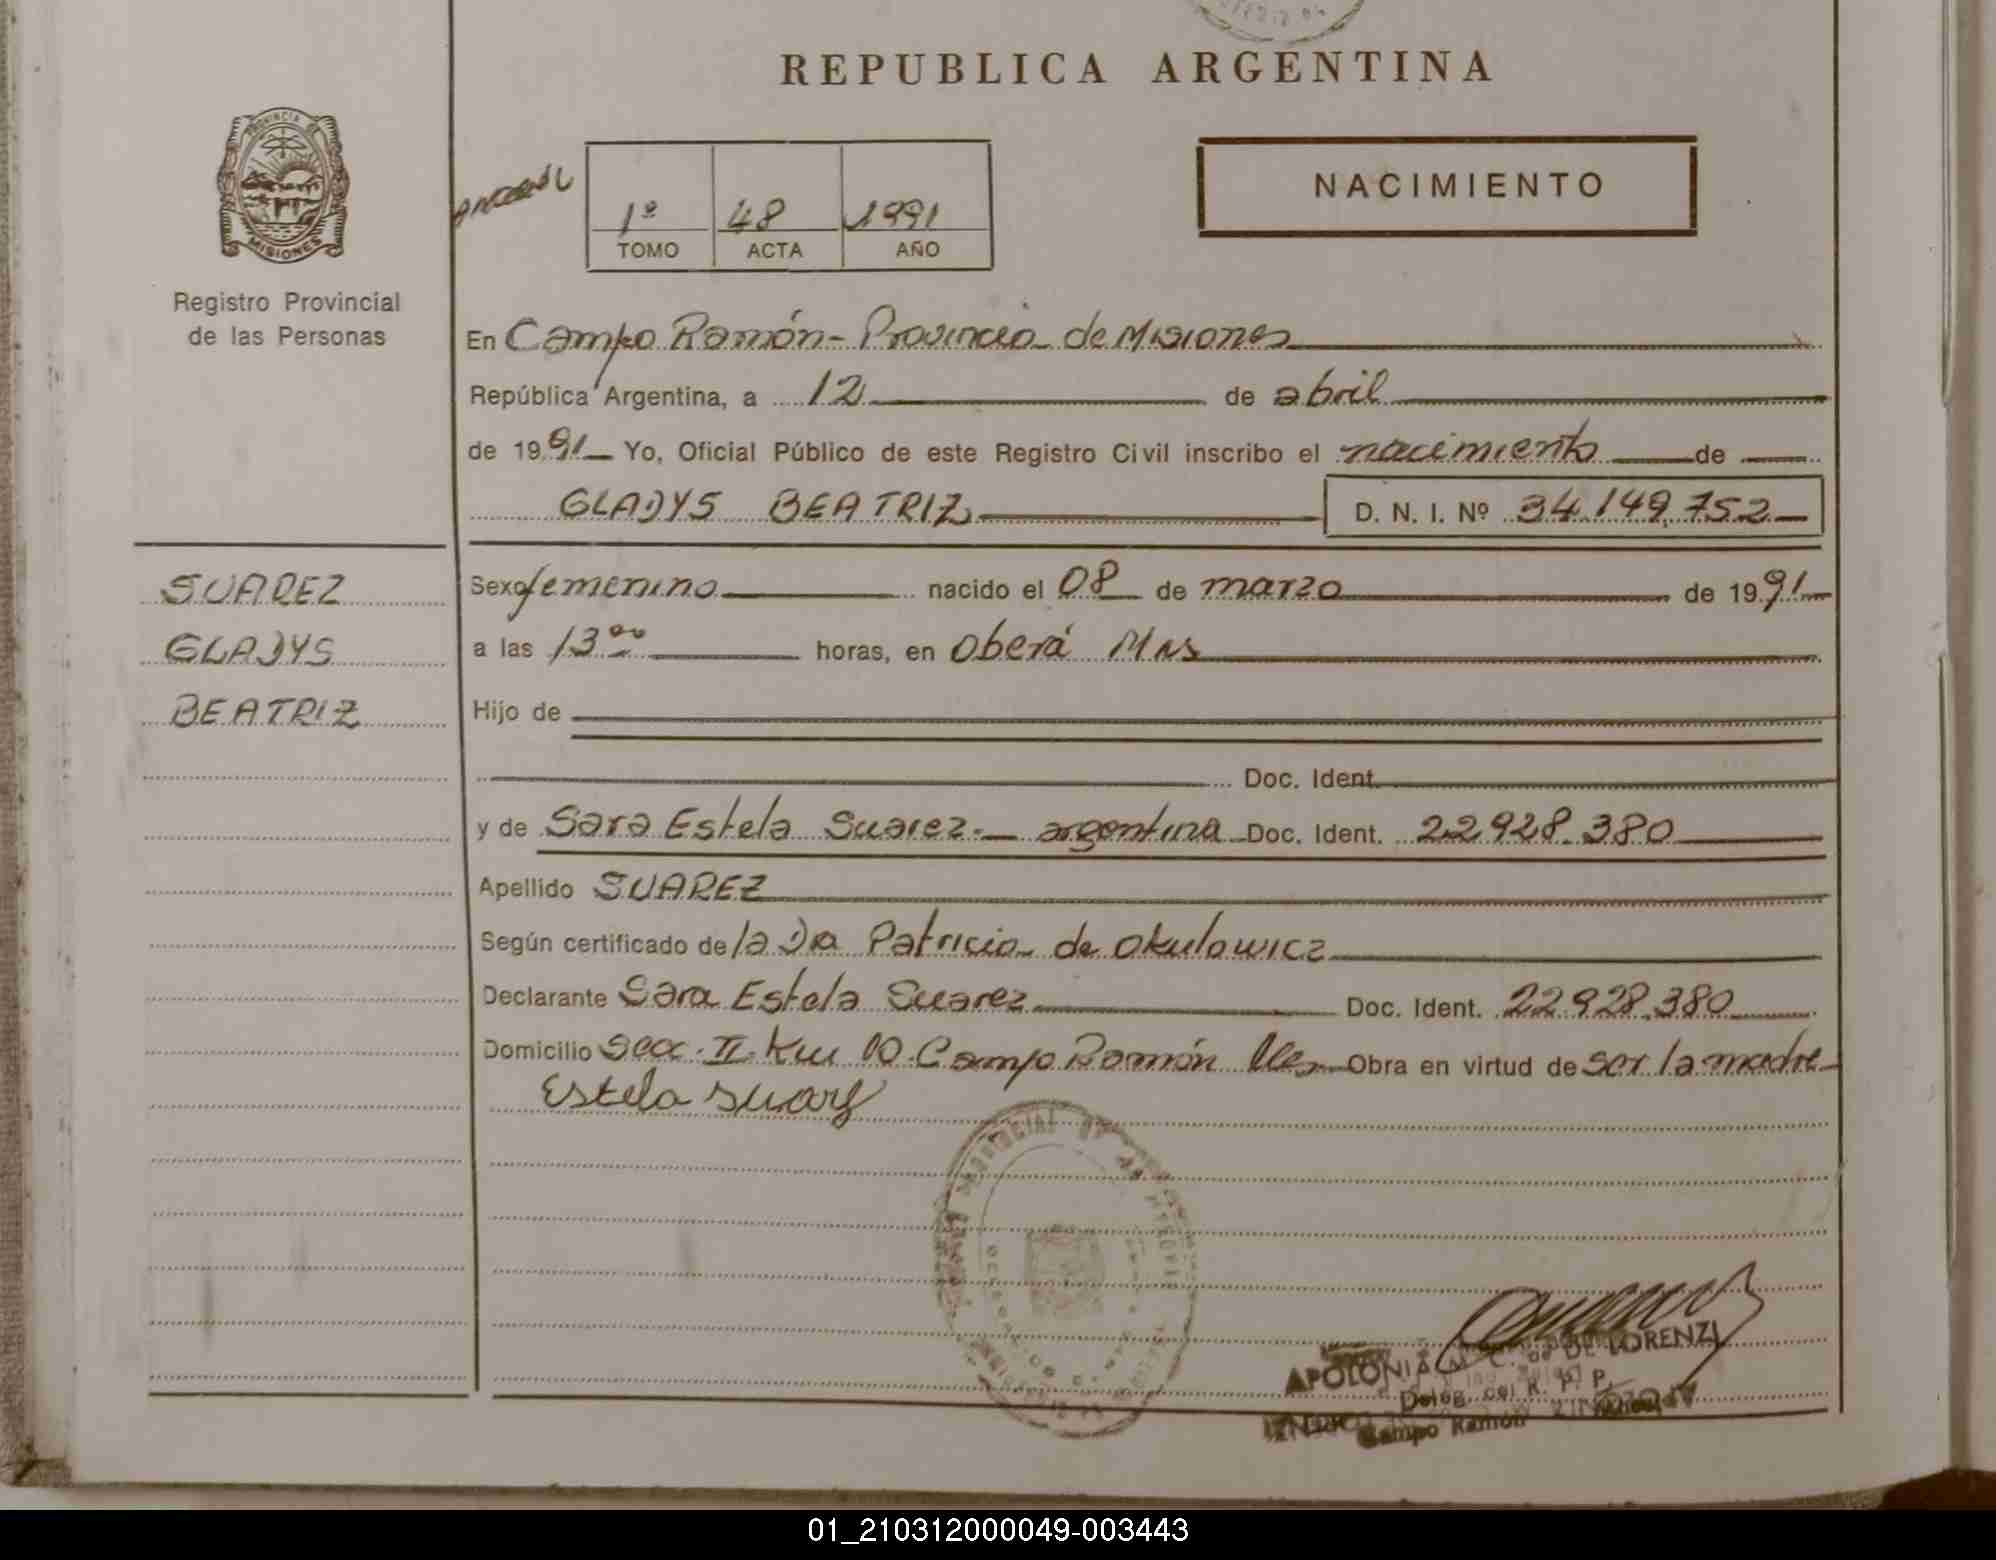 REPUBLICA ARGENTINA
PROVINCIA DE
MISIONES
Registro Provincial
de las Personas
1º 48 1991
TOMO ACTA AÑO
NACIMIENTO
En Campo Ramón - Provincia de Misiones
República Argentina, a 12 de abril
de 1991 Yo, Oficial Público de este Registro Civil inscribo el nacimiento de
GLADYS BEATRIZ D. N. I. Nº 34.149.752
SUAREZ
GLADYS
BEATRIZ
Sexo femenino nacido el 08 de marzo de 1991
a las 13 00 horas, en Oberá Mns
Hijo de
Doc. Ident.
y de Sara Estela Suarez.- argentina Doc. Ident. 22.928.380
Apellido SUAREZ
Según certificado de la Dra Patricia de Okulowicz
Declarante Sara Estela Suarez Doc. Ident. 22.928.380
Domicilio Secc. II. Km 10. Campo Ramón Obra en virtud de ser la madre
Estela Suarez
APOLONIA M. C. de DE LORENZI
Deleg. del R. P. P.
Campo Ramón
01_210312000049-003443